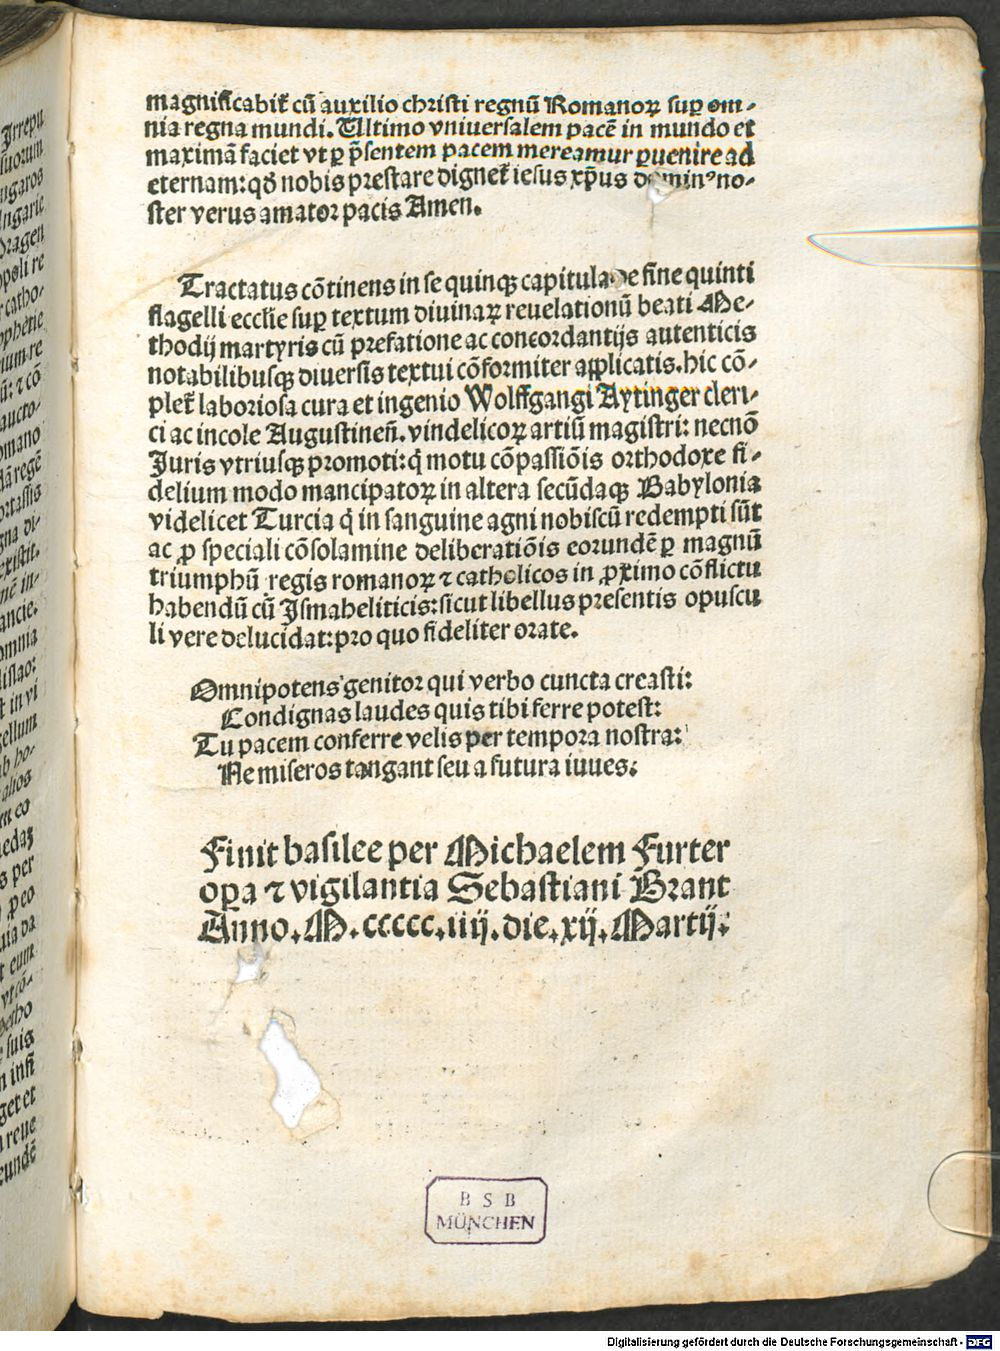 magnificabit᷑ cū auxilio christi regnū Romanoꝝ suꝑ om-
nia regna mundi. Ultimo vniuersalem pacē in mundo et
maximā faciet vt ꝑ p̄sentem pacem mereamur ꝑuenire ad
eternam: qđ nobis prestare dignet᷑ iesus xp̄us dominꝰ no-
ster verus amator pacis Amen.
Tractatus cōtinens in se quinqꝫ capitula de fine quinti
flagelli ecclie suꝑ textum diuinaꝝ reuelationū beati Me-
thodij martyris cū prefatione ac concordantijs autenticis
notabilibusqꝫ diuersis textui cōformiter applicatis. hic cō-
plet᷑ laboriosa cura et ingenio Wolffgangi Aytinger cleri-
ci ac incole Augustineñ. vindelicoꝝ artiū magistri: necnō
Juris vtriusqꝫ promoti: q̇ motu cōpassiōis orthodoxe fi-
delium modo mancipatoꝝ in altera secūdaqꝫ Babylonia
videlicet Turcia q̇ in sanguine agni nobiscū redempti sūt
ac ꝓ speciali cōsolamine deliberatiōis eorundē ꝑ magnū
triumphū regis romanoꝝ ⁊ catholicos in ꝓximo cōflictu
habendū cū Ismaheliticis: sicut libellus presentis opuscu
li vere delucidat: pro quo fideliter orate.
Omnipotens genitor qui verbo cuncta creasti:
Condignas laudes quis tibi ferre potest:
Tu pacem conferre velis per tempora nostra:
Ne miseros tangant seu a futura iuues:
Finit basilee per Michaelem Furter
oꝑa ⁊ vigilantia Sebastiani Brant
Anno. M. ccccc. iiij. die. xij. Martij:
B S B
MÜNCHEN
Digitalisierung gefördert durch die Deutsche Forschungsgemeinschaft - DFG